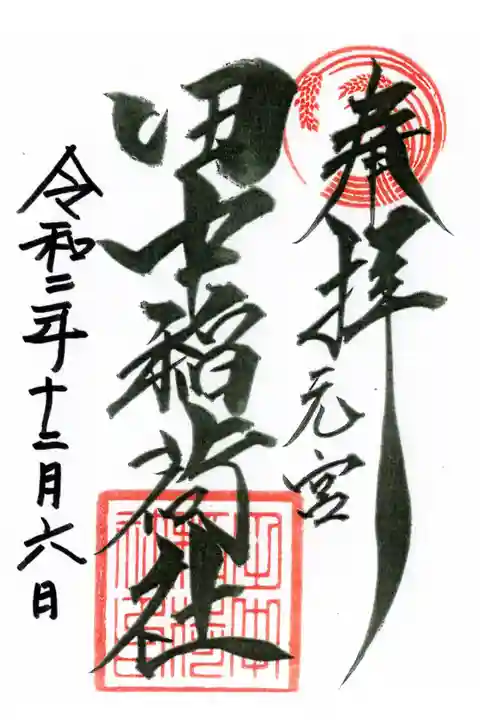 奉拝
元宮
田中稲荷社
令和二年十二月六日